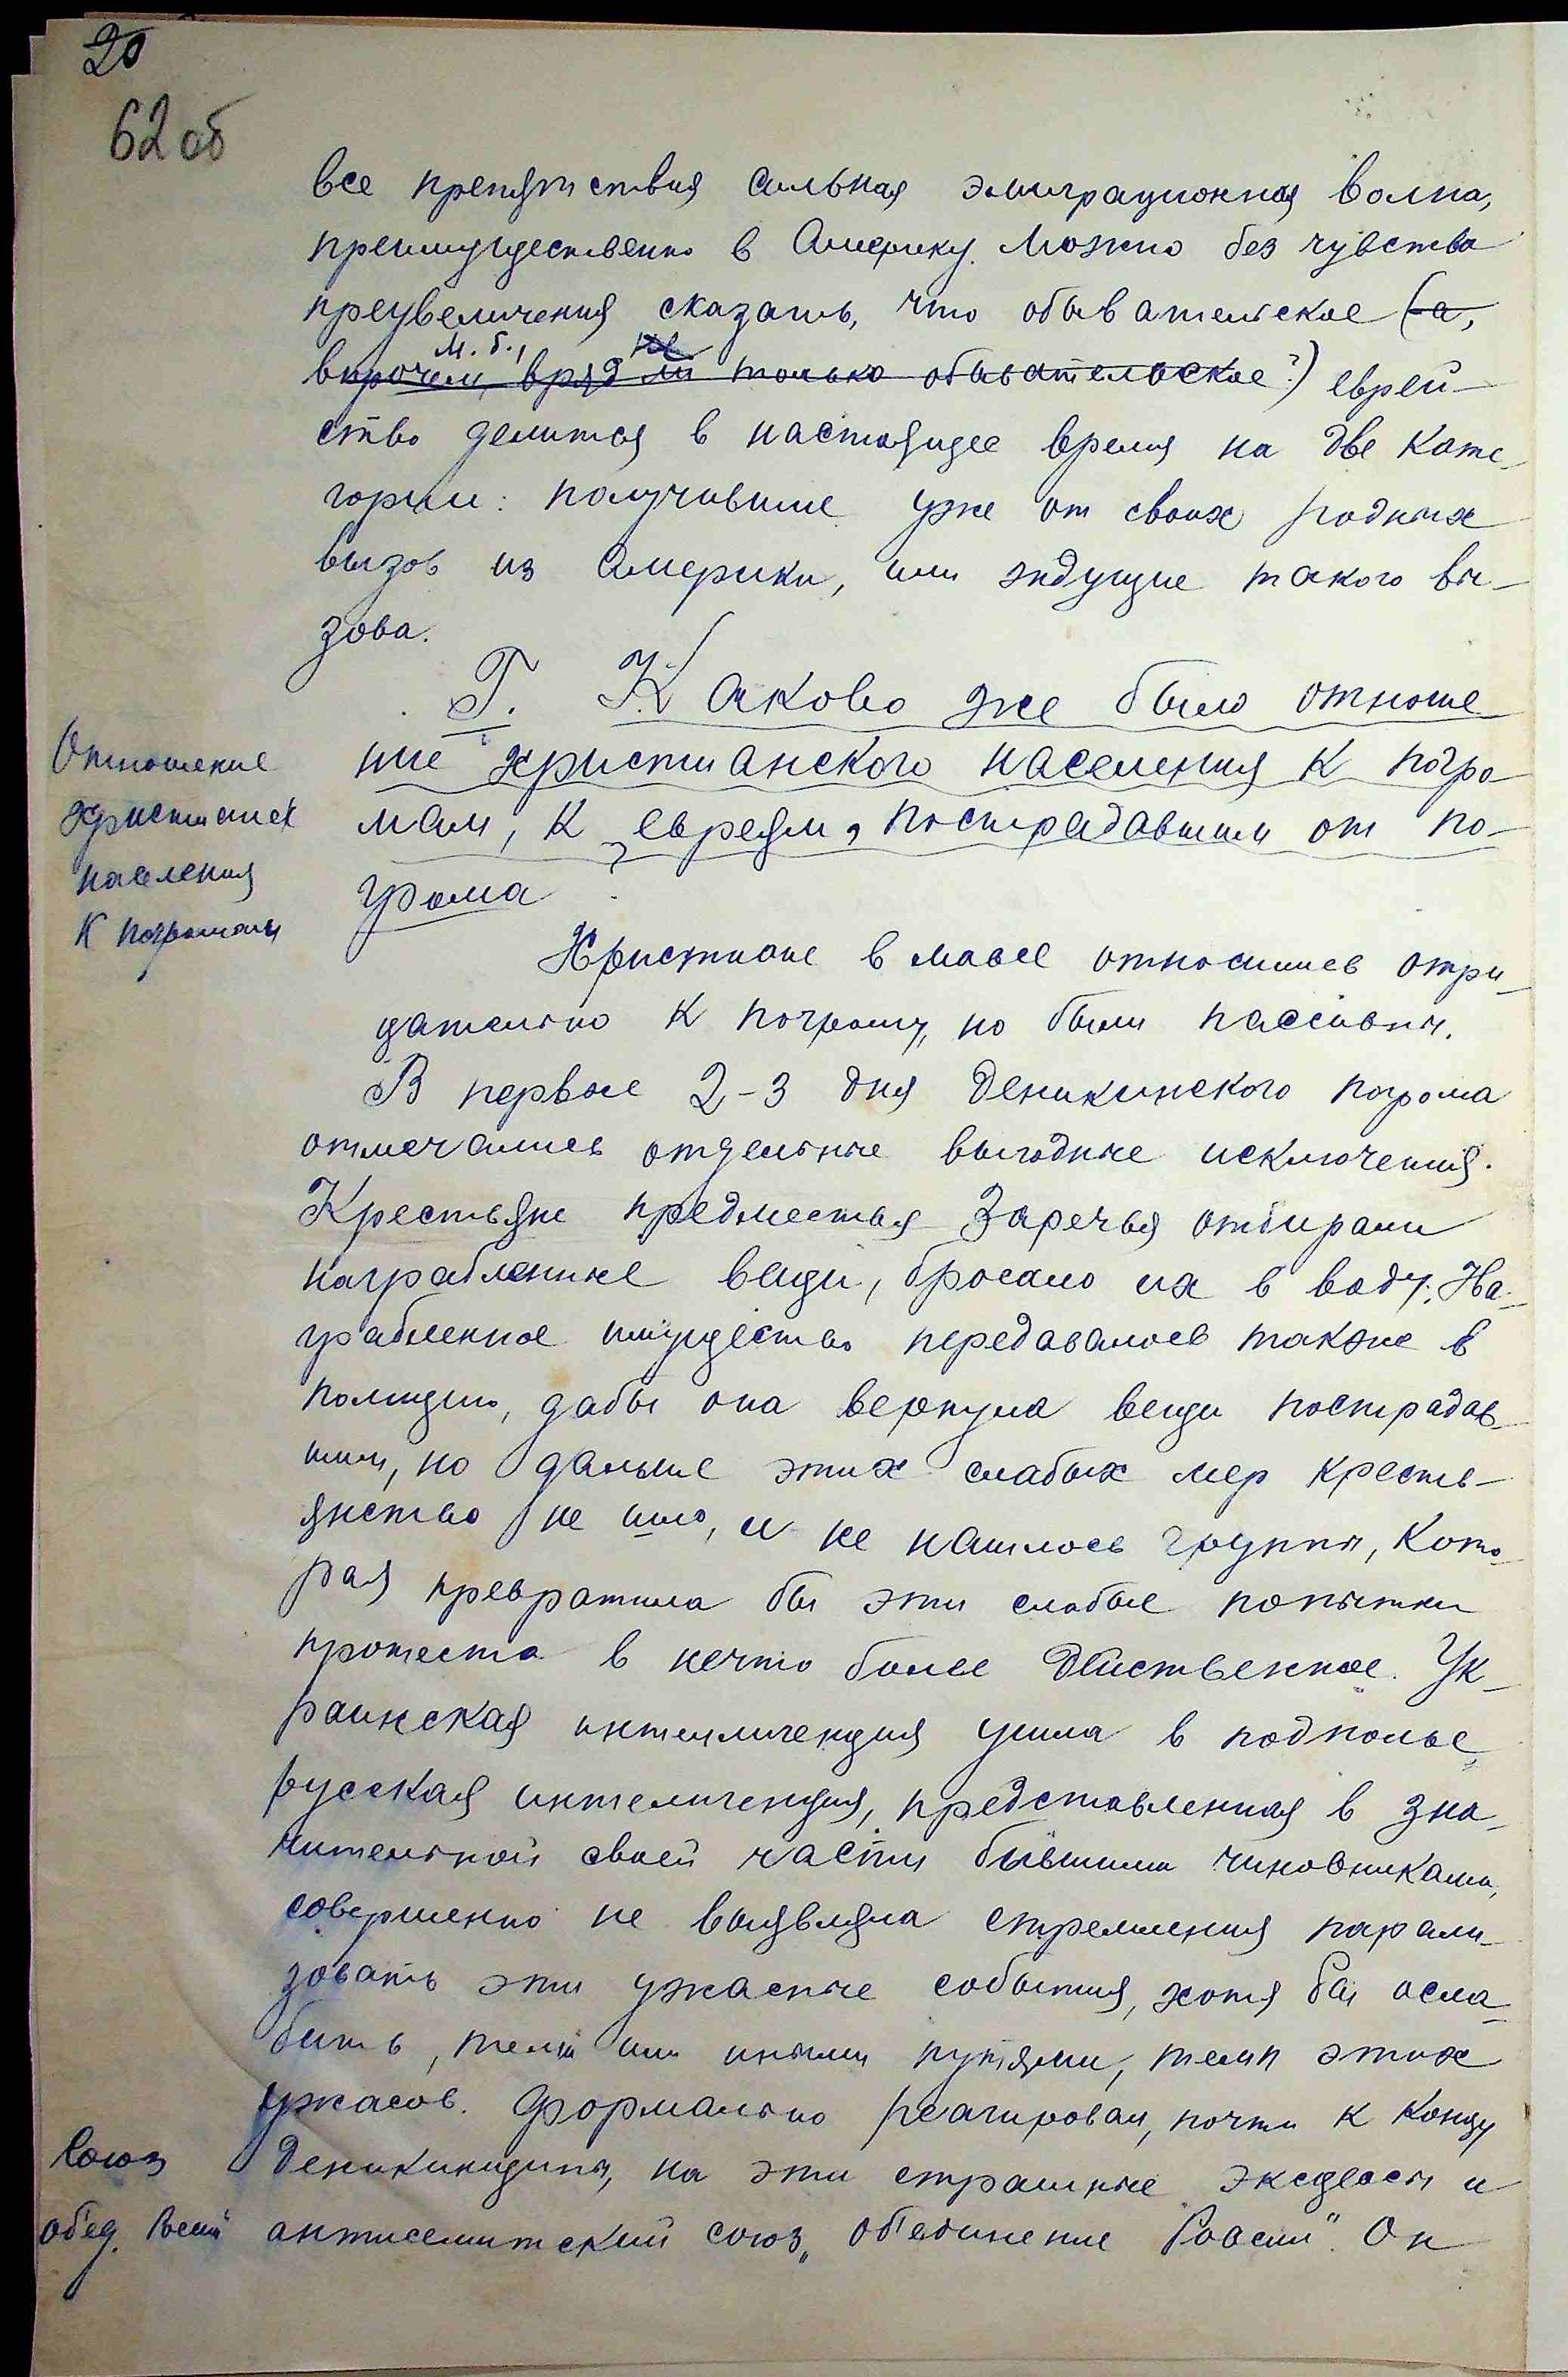 20
62 об
все препятствия сильная эмиграционная волна,
преимущественно в Америку. Можно без чувства
преувеличения сказать, что обывательское (а,
м. б., не
впрочем, вряд ли только обывательское?) еврей-
ство делится в настоящее время на две кате-
гории: получившие уже от своих родных
вызов из Америки, или ждущие такого вы-
зова.
Г. Каково же было отноше
ние христианского населения к погро-
мам, к евреям, пострадавшим от по-
грома?
Отношение
христианск
населения
к погромам
Христиане в массе относились отри-
цательно к погрому, но были пассивны.
В первые 2-3 дня деникинского погрома
отмечались отдельные выгодные исключения.
Крестьяне предместья Заречья отбирали
награбленные вещи, бросало их в воду. На-
грабленное имущество передавалось также в
полицию, дабы она вернула вещи пострадав-
шим, но дальше этих слабых мер кресть-
янство не шло, и не нашлось группы, кото-
рая превратила бы эти слабые попытки
протеста в нечто более действенное. Ук-
раинская интеллигенция ушла в подполье,
русская интелигенция, представленная в зна-
чительной своей части бывшими чиновниками,
совершенно не выявляла стремления парали-
зовать эти ужасные события, хотя бы осла-
бить, теми или иными путями, темп этих
ужасов. Формально реагировал, почти к концу
деникинщины, на эти страшные эксцессы и
антисемитский союз „об'единение России". Он
Союз
об'ед. Россий